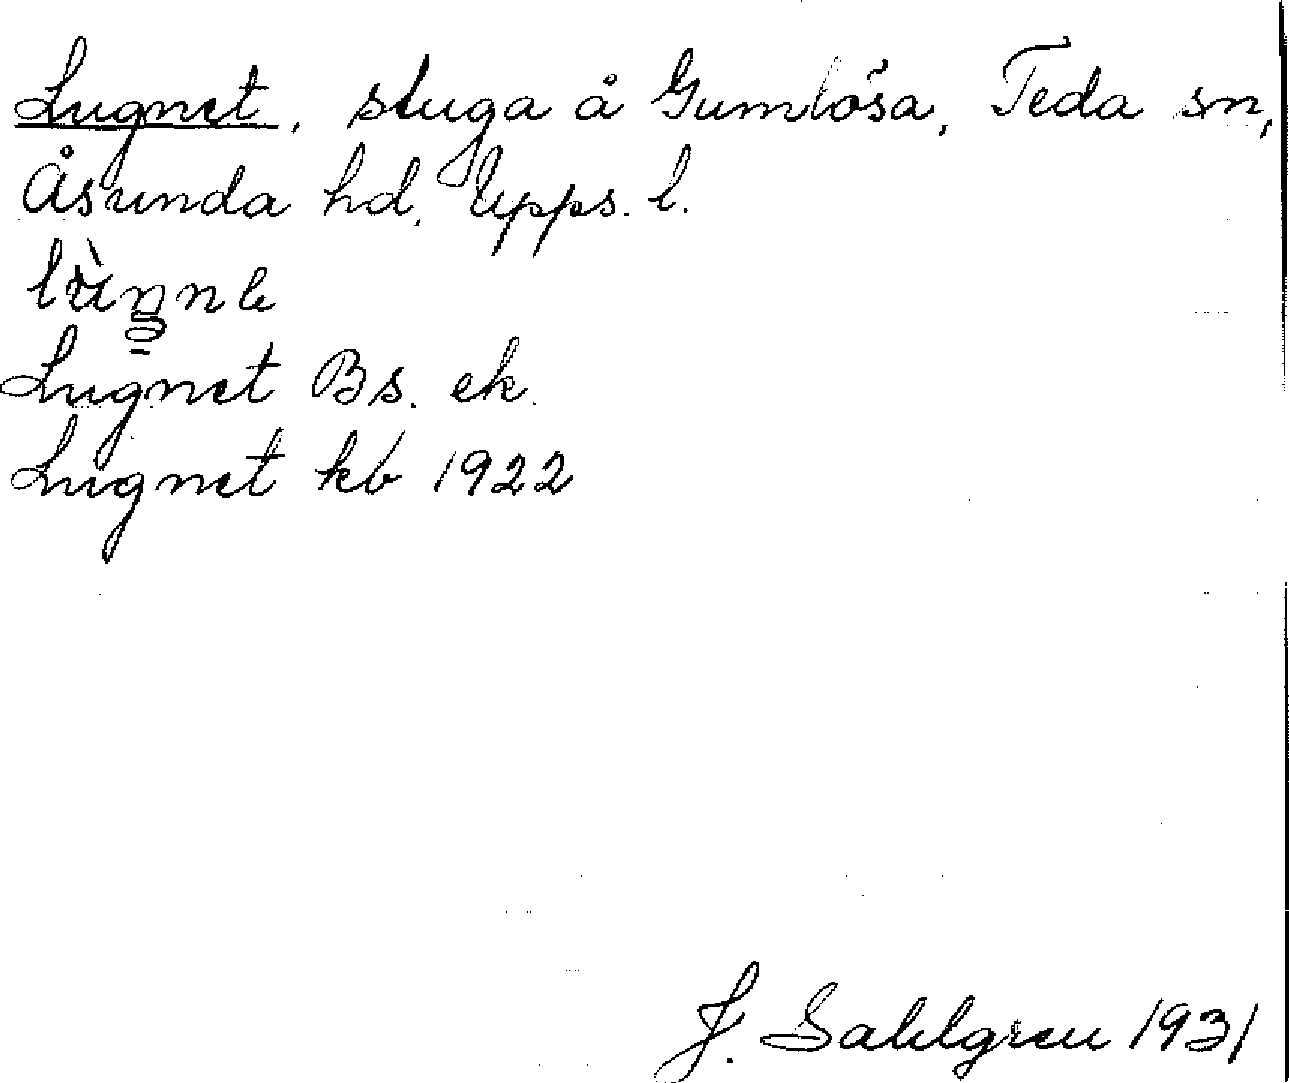 Lugnet, stuga å Gumlösa, Teda sn,
Åsunda hd, Upps. l.
Lugnet Bs. ek.
Lugnet kb 1922
J. Sahlgren 1931